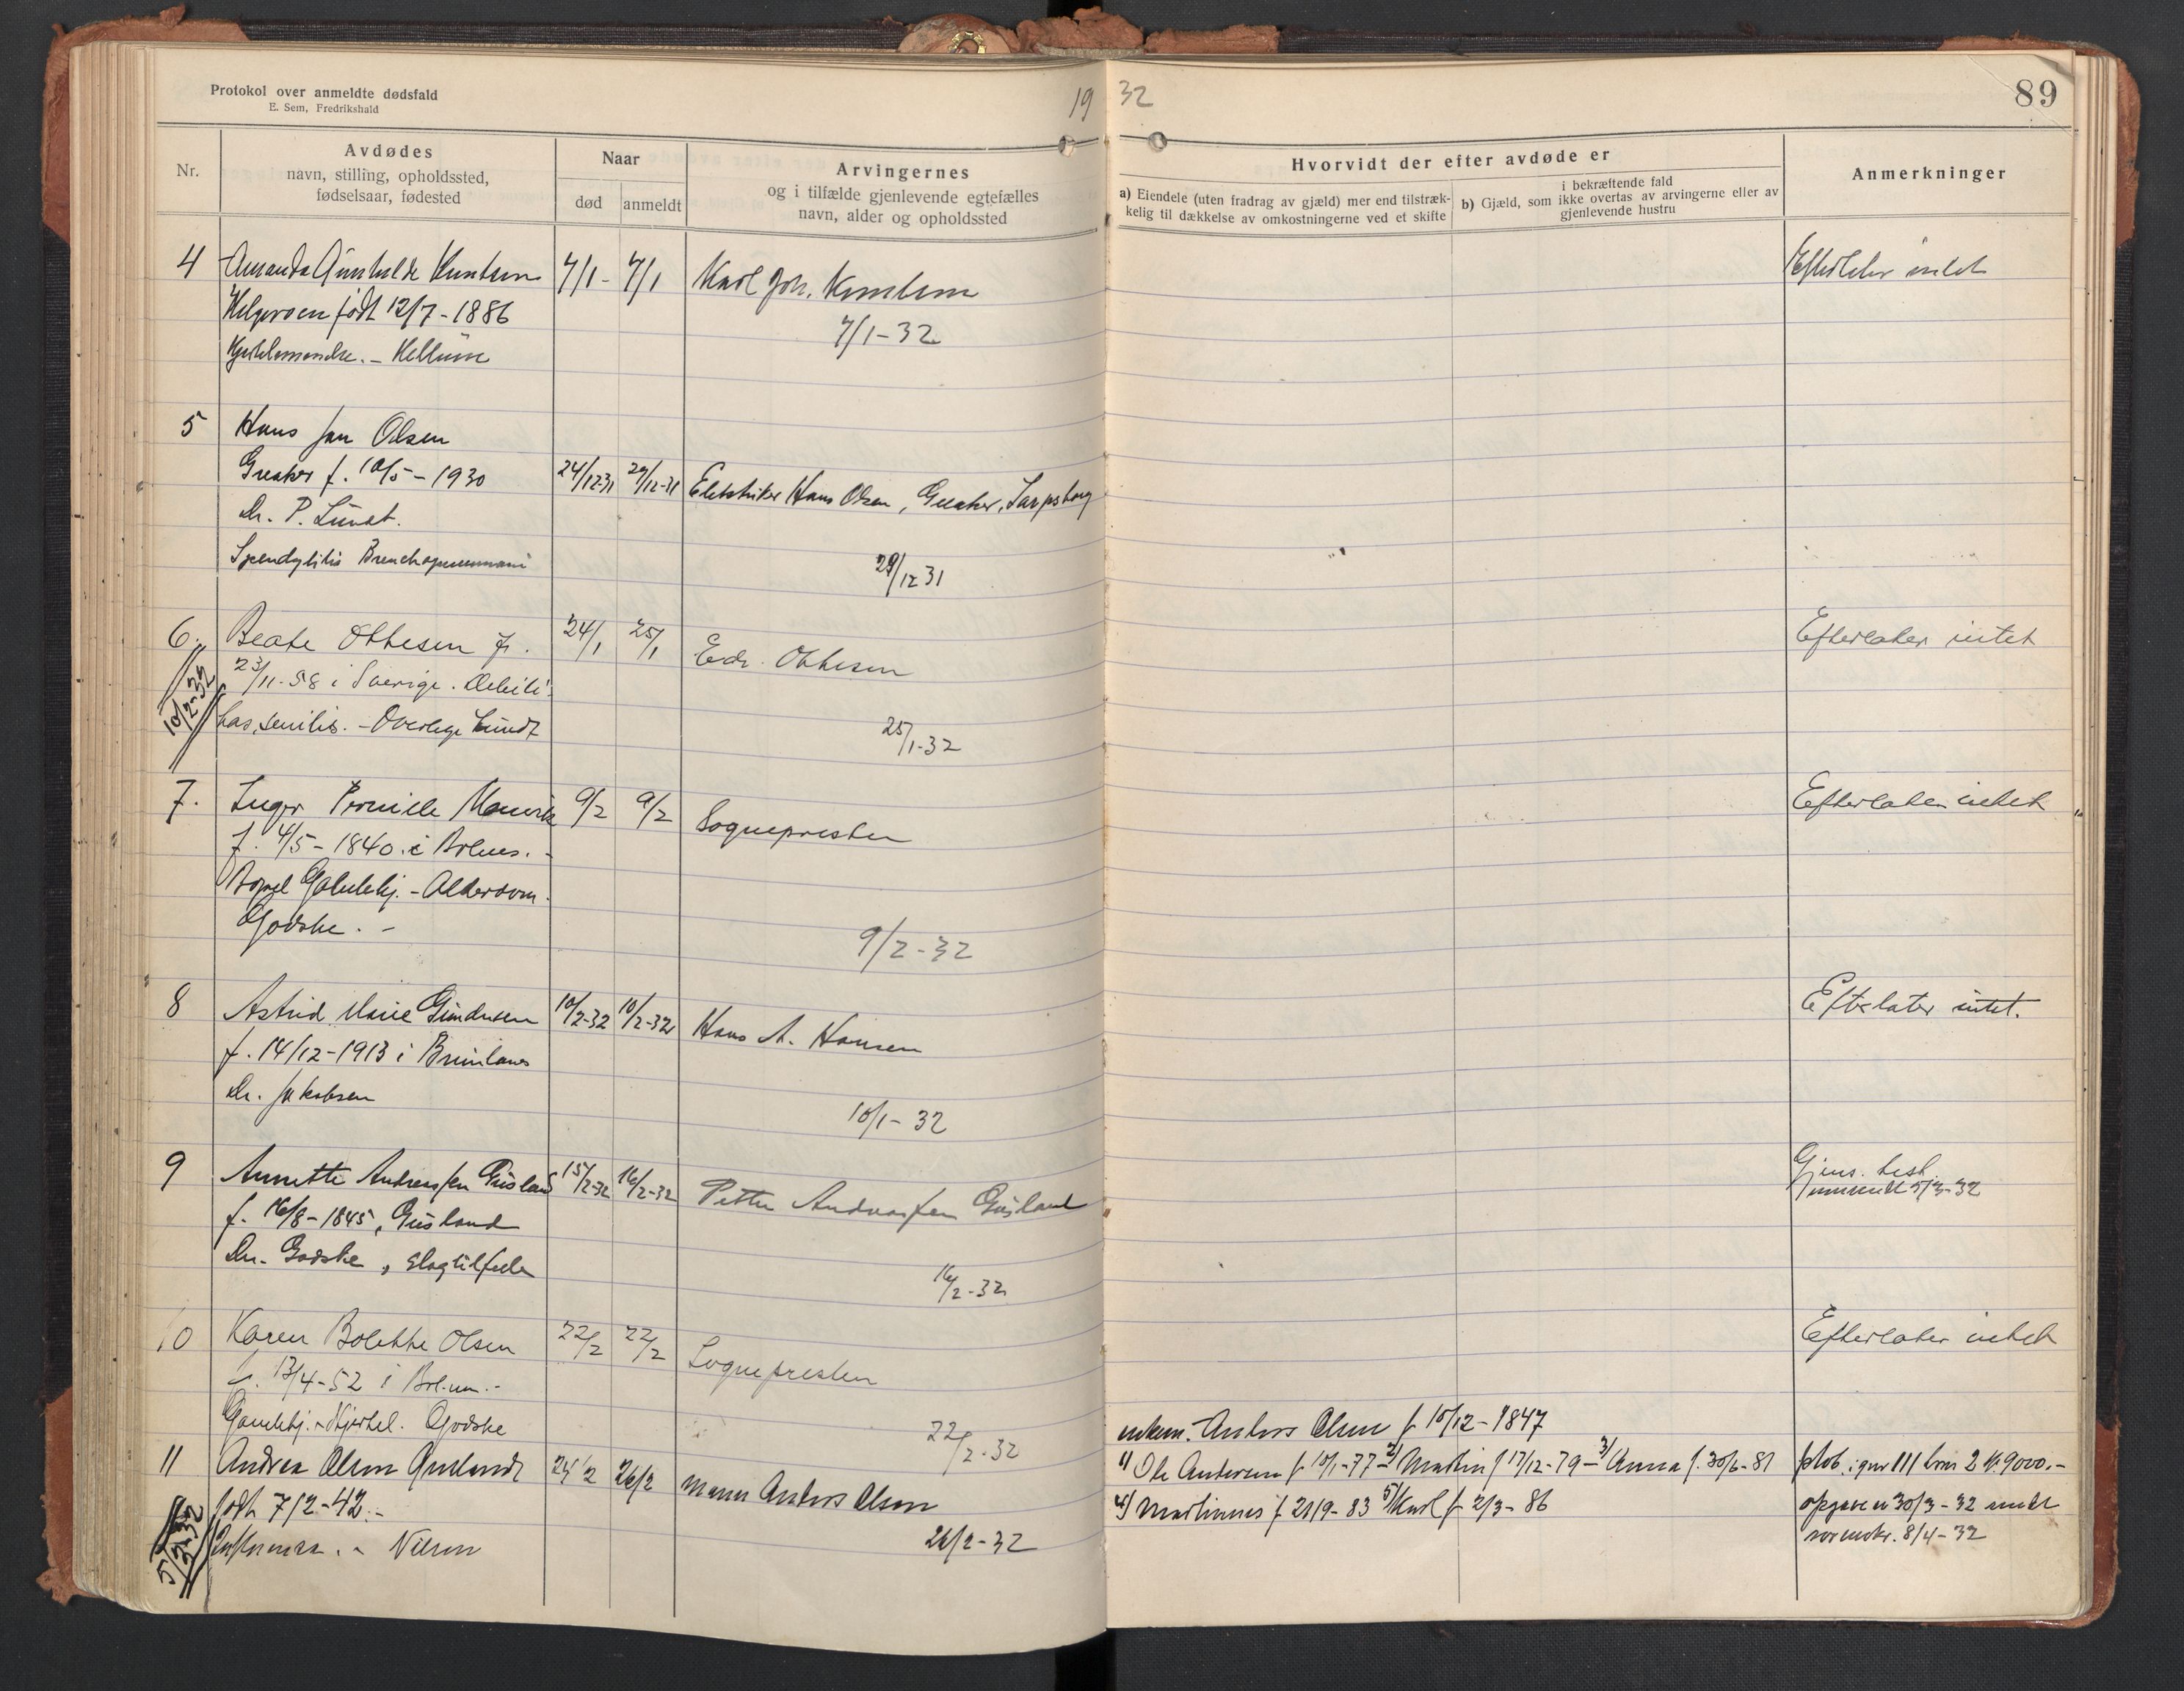 Protokol over anmeldte dødsfald
E. Sem, Fredrikshald
19 32
89
Nr.
Avdødes
navn, stilling, opholdssted,
fødselsaar, fødested
Naar
død
anmeldt
Arvingernes
og i tilfælde gjenlevende egtefælles
navn, alder og opholdssted
Hvorvidt der efter avdøde er
a) Eiendele (uten fradrag av gjæld) mer end tilstræk-
kelig til dækkelse av omkostningerne ved et skifte
i bekræftende fald
b) Gjæld, som ikke overtas av arvingerne eller av
gjenlevende hustru
Anmerkninger
4 Amanda Gunhilde Knutsen 7/1 - 7/1 Karl Joh. Knutsen Efterlater intet
Helgeroen født 12/7 - 1886
7/1 - 32
5 Hans Jan Olsen
Greaker f. 10/5 - 1930 24/12-31 29/12-31 Elektriker Hans Olsen, Greaker, Sarpsborg
Dr. P. Lundt.
29/12 31
6. Beate Ottesen f. 24/1 25/1 Edv. Ottesen Efterlater intet
23/11-58 i Sverige. Debili-
10/2-32
tas senilis. - Overlege Lundt
25/1-32
7. Inger Pernille 9/2 9/2 Sognepresten Efterlater intet
f. 4/5 - 1840 i Brlnes.
Gamlehj. - Alderdom.
Godske. -
9/2 - 32
8 Astrid Marie Gundersen 10/2-32 10/2-32 Hans A. Hansen Efterlater intet.
f. 14/12 - 1913 i Brunlanes
Dr. Jakobsen
10/1 - 32
9 Annette Andreassen Gusland 15/2-32 16/2-32 Petter Andreassen Gusland Gjens. test.
f. 16/8 - 1845, Gusland 5/3-32
Dr. Godske, slagtilfelle
16/2-32
10 Karen Bolette Olsen 22/2 22/2 Sognepresten Efterlater intet
f. 13/4-52 i
Gamlehj. - Godske
22/2-32
enkem. Anders Olsen f 10/12 - 1847
11 Andrea Olsen Guslandt 24/2 26/2 Mann Anders Olsen
1) Ole Andersen f 10/1-77 - 2) Martin f 17/12-79 - 3) Anna f. 30/6-81
født 7/2-42. -
4) Martinius f 21/9-83 5) Karl f 2/3-86
opgave 30/3-32
Influensa. - Nilsen
26/2-32
8/4-32